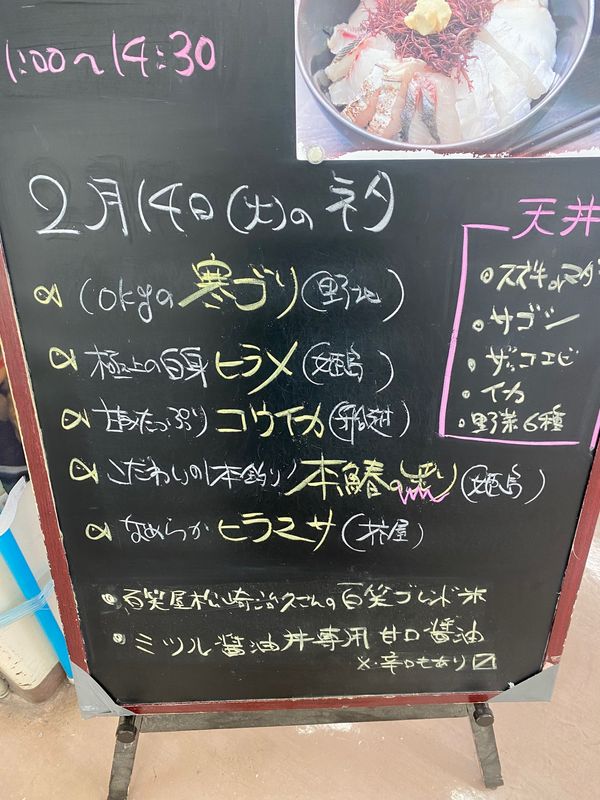 1:00〜14:30
2月14日(火)のネタ
10kgの寒ブリ(野北)
極上の白身ヒラメ(姫島)
甘みたっぷりコウイカ(船越)
こだわりの1本釣り本鰆の炙り(姫島)
なめらかヒラマサ(芥屋)
・百笑屋松崎治久さんの百笑ブレンド米
・ミツル醤油丼専用甘口醤油
※辛口もあり
天丼
・スズキor
・サゴシ
・ザッコエビ
・イカ
・野菜6種